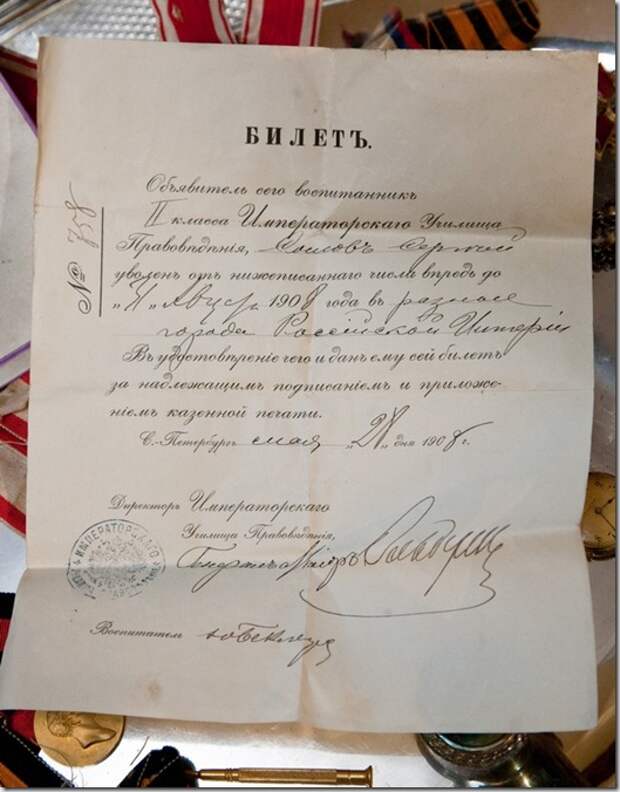 БИЛЕТЪ.
№ 758
Объявитель сего воспитанникъ
II класса Императорскаго Училища
Правовѣдѣнія, Сергѣй
уволенъ отъ нижеписаннаго числа впредь до
" " Август. 1908 года въ разные
города Россійской Имперіи
Въ удостовѣреніе чего и данъ ему сей билетъ
за надлежащимъ подписаніемъ и приложе-
ніемъ казенной печати.
С.-Петербургъ мая "28" дня 1908 г.
Директоръ Императорскаго
Училища Правовѣдѣнія,
ИМПЕРАТОРСКАГО
Генералъ Маіоръ
Воспитатель